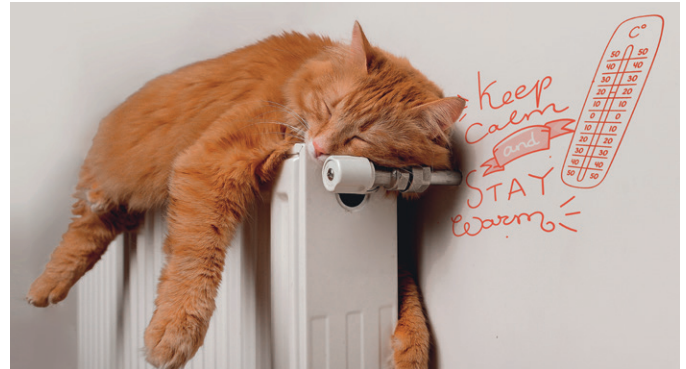 Keep
Calm
and
STAY
Warm
C°
50 50
40 40
30 30
20 20
10 10
0 0
10 10
20 20
30 30
40 40
50 50